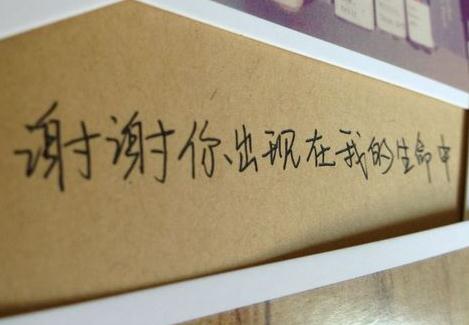 谢谢你出现在我的生命中